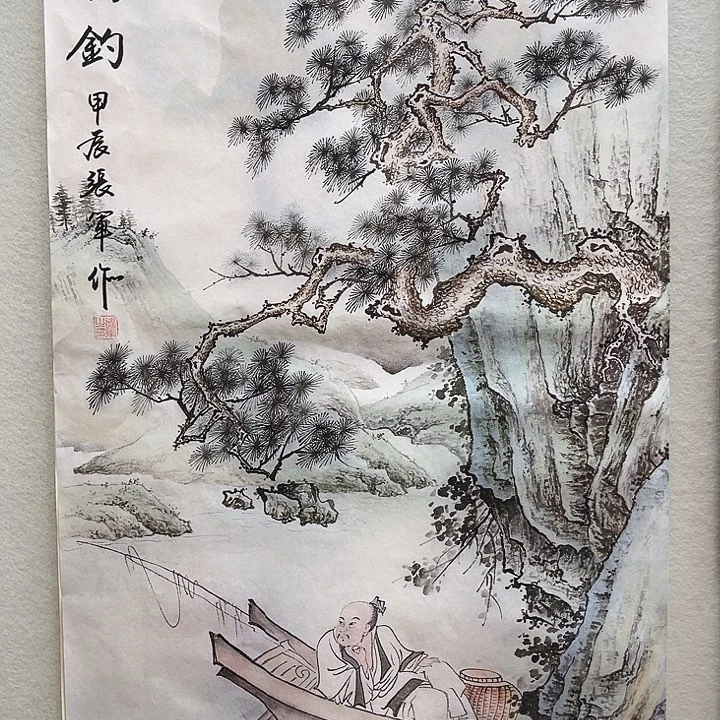 釣
甲辰張軍作